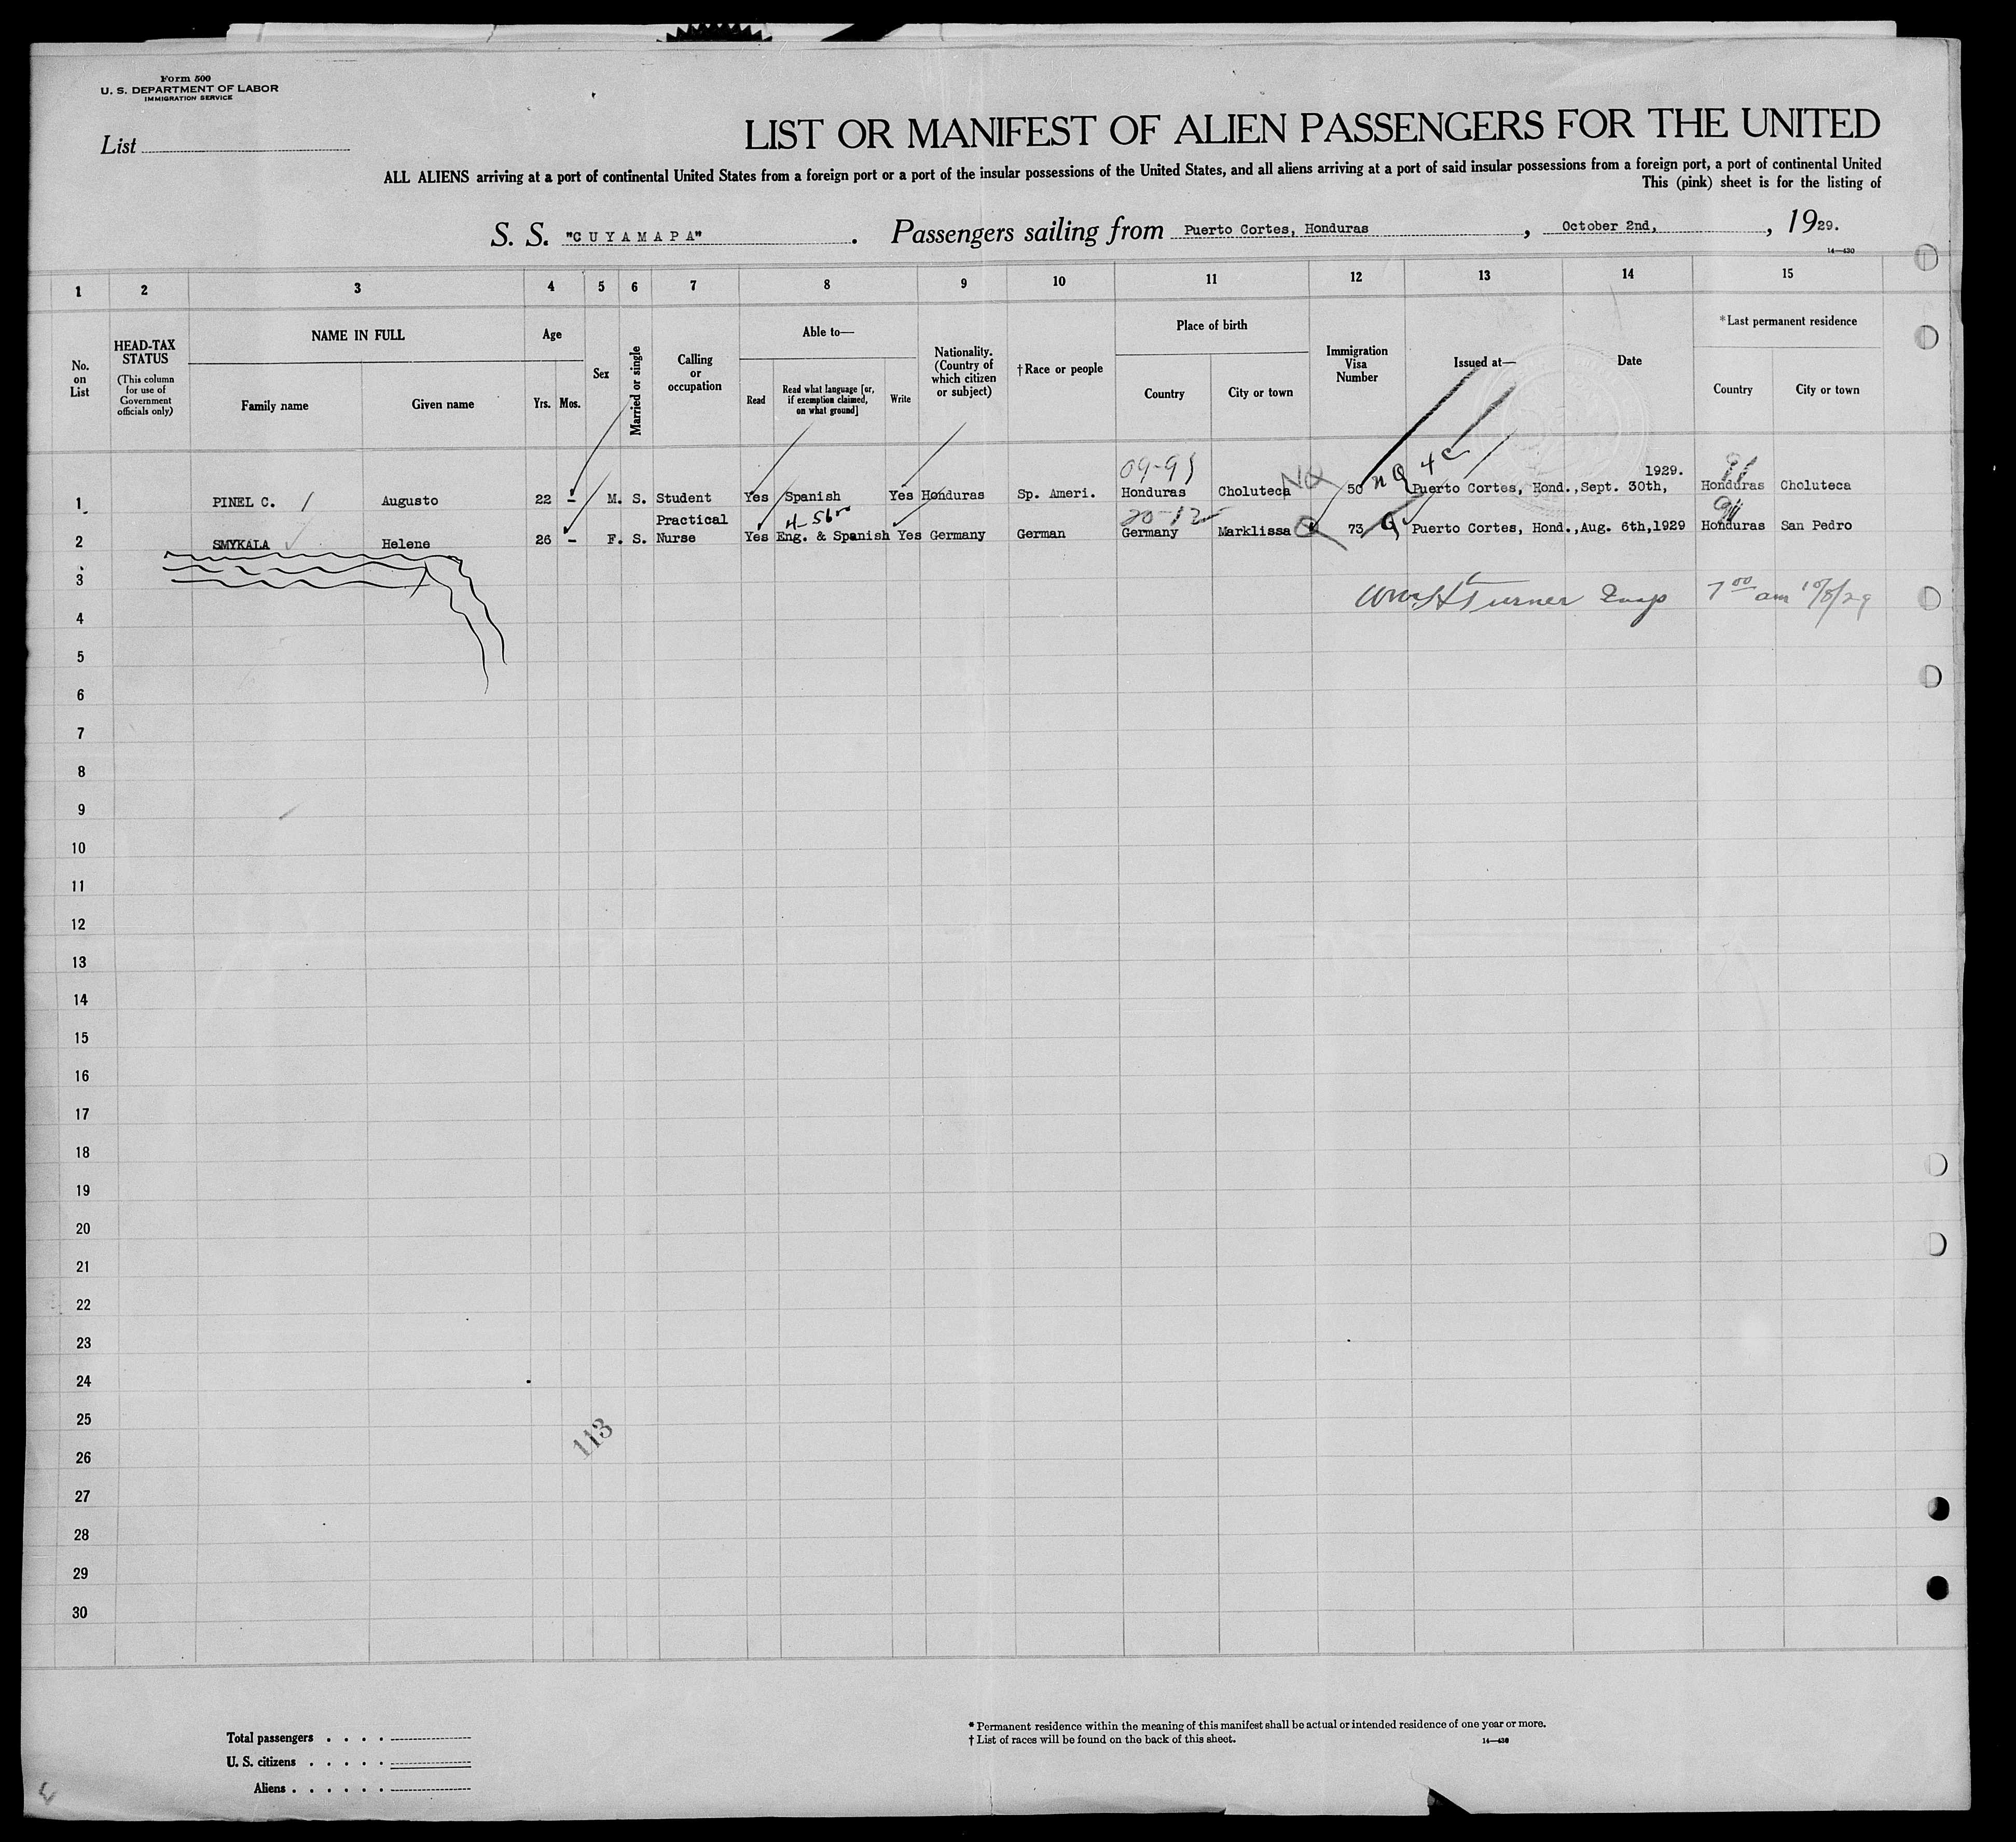 Form 500
U. S. DEPARTMENT OF LABOR
IMMIGRATION SERVICE
List
LIST OR MANIFEST OF ALIEN PASSENGERS FOR THE UNITED
ALL ALIENS arriving at a port of continental United States from a foreign port or a port of the insular possessions of the United States, and all aliens arriving at a port of said insular possessions from a foreign port, a port of continental United
This (pink) sheet is for the listing of
S. S. "CUYAMAPA". Passengers sailing from Puerto Cortes, Honduras, October 2nd, , 1929.
14—430
1 2 3 4 5 6 7 8 9 10 11 12 13 14 15
No. on List
HEAD-TAX STATUS
(This column for use of Government officials only)
NAME IN FULL
Family name Given name
Age
Yrs. Mos.
Sex
Married or single
Calling or occupation
Able to—
Read
Read what language [or, if exemption claimed, on what ground]
Write
Nationality. (Country of which citizen or subject)
†Race or people
Place of birth
Country City or town
Immigration Visa Number
Issued at—
Date
*Last permanent residence
Country City or town
09-91 NQ nQ 4c 1929. 91
1 PINEL C. Augusto 22 – M. S. Student Yes Spanish Yes Honduras Sp. Ameri. Honduras Choluteca 50 Puerto Cortes, Hond., Sept. 30th, Honduras Choluteca
Practical 20-12
2 SMYKALA Helene 26 – F. S. Nurse Yes Eng. & Spanish Yes Germany German Germany Marklissa Q 73 Q Puerto Cortes, Hond., Aug. 6th,1929 Honduras San Pedro
3
Wm H Turner Insp 7 00 am 10/8/29
4
5
6
7
8
9
10
11
12
13
14
15
16
17
18
19
20
21
22
23
24
25
113
26
27
28
29
30
Total passengers . . . .
U. S. citizens . . . . .
Aliens . . . . . .
* Permanent residence within the meaning of this manifest shall be actual or intended residence of one year or more.
† List of races will be found on the back of this sheet.
14—430